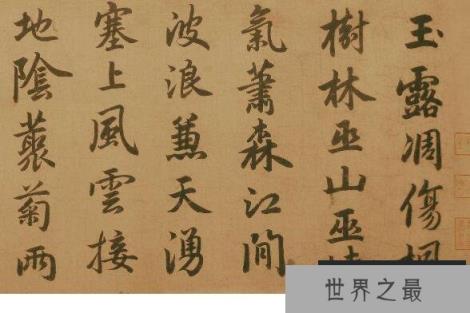 玉露凋傷楓
樹林巫山巫
氣蕭森江間
波浪兼天湧
塞上風雲接
地陰藂菊兩
世界之最